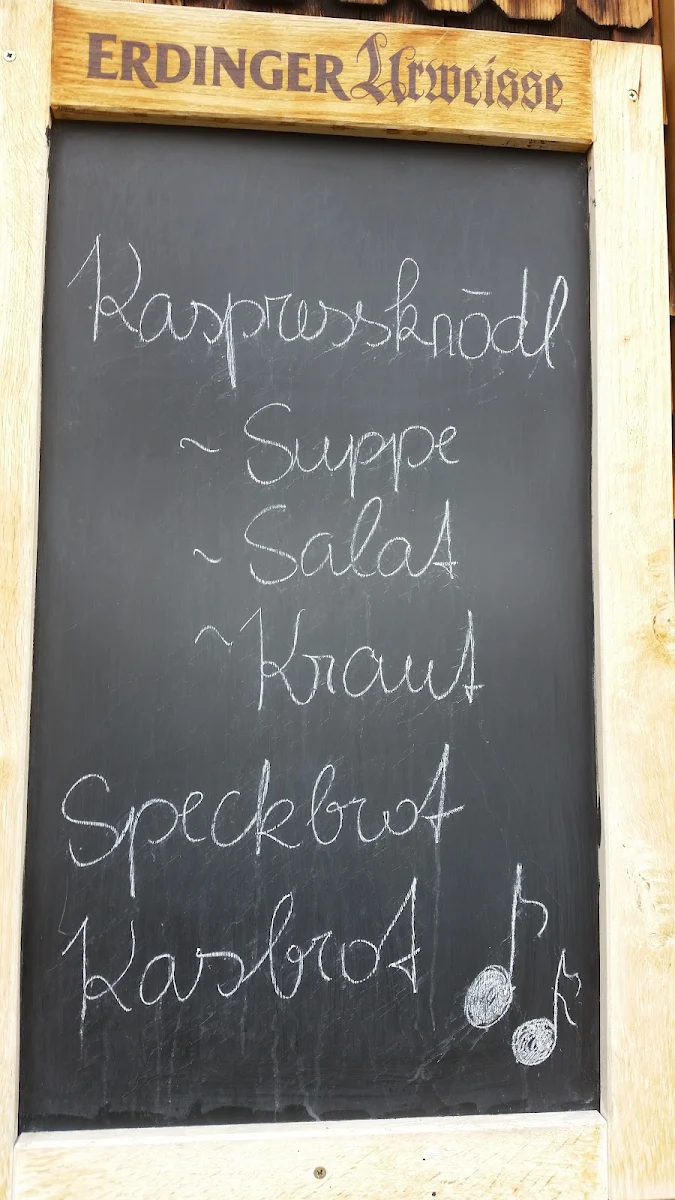 ERDINGER Urweisse
Kaspressknödl
~ Suppe
~ Salat
~ Kraut
Speckbrot
Kasbrot